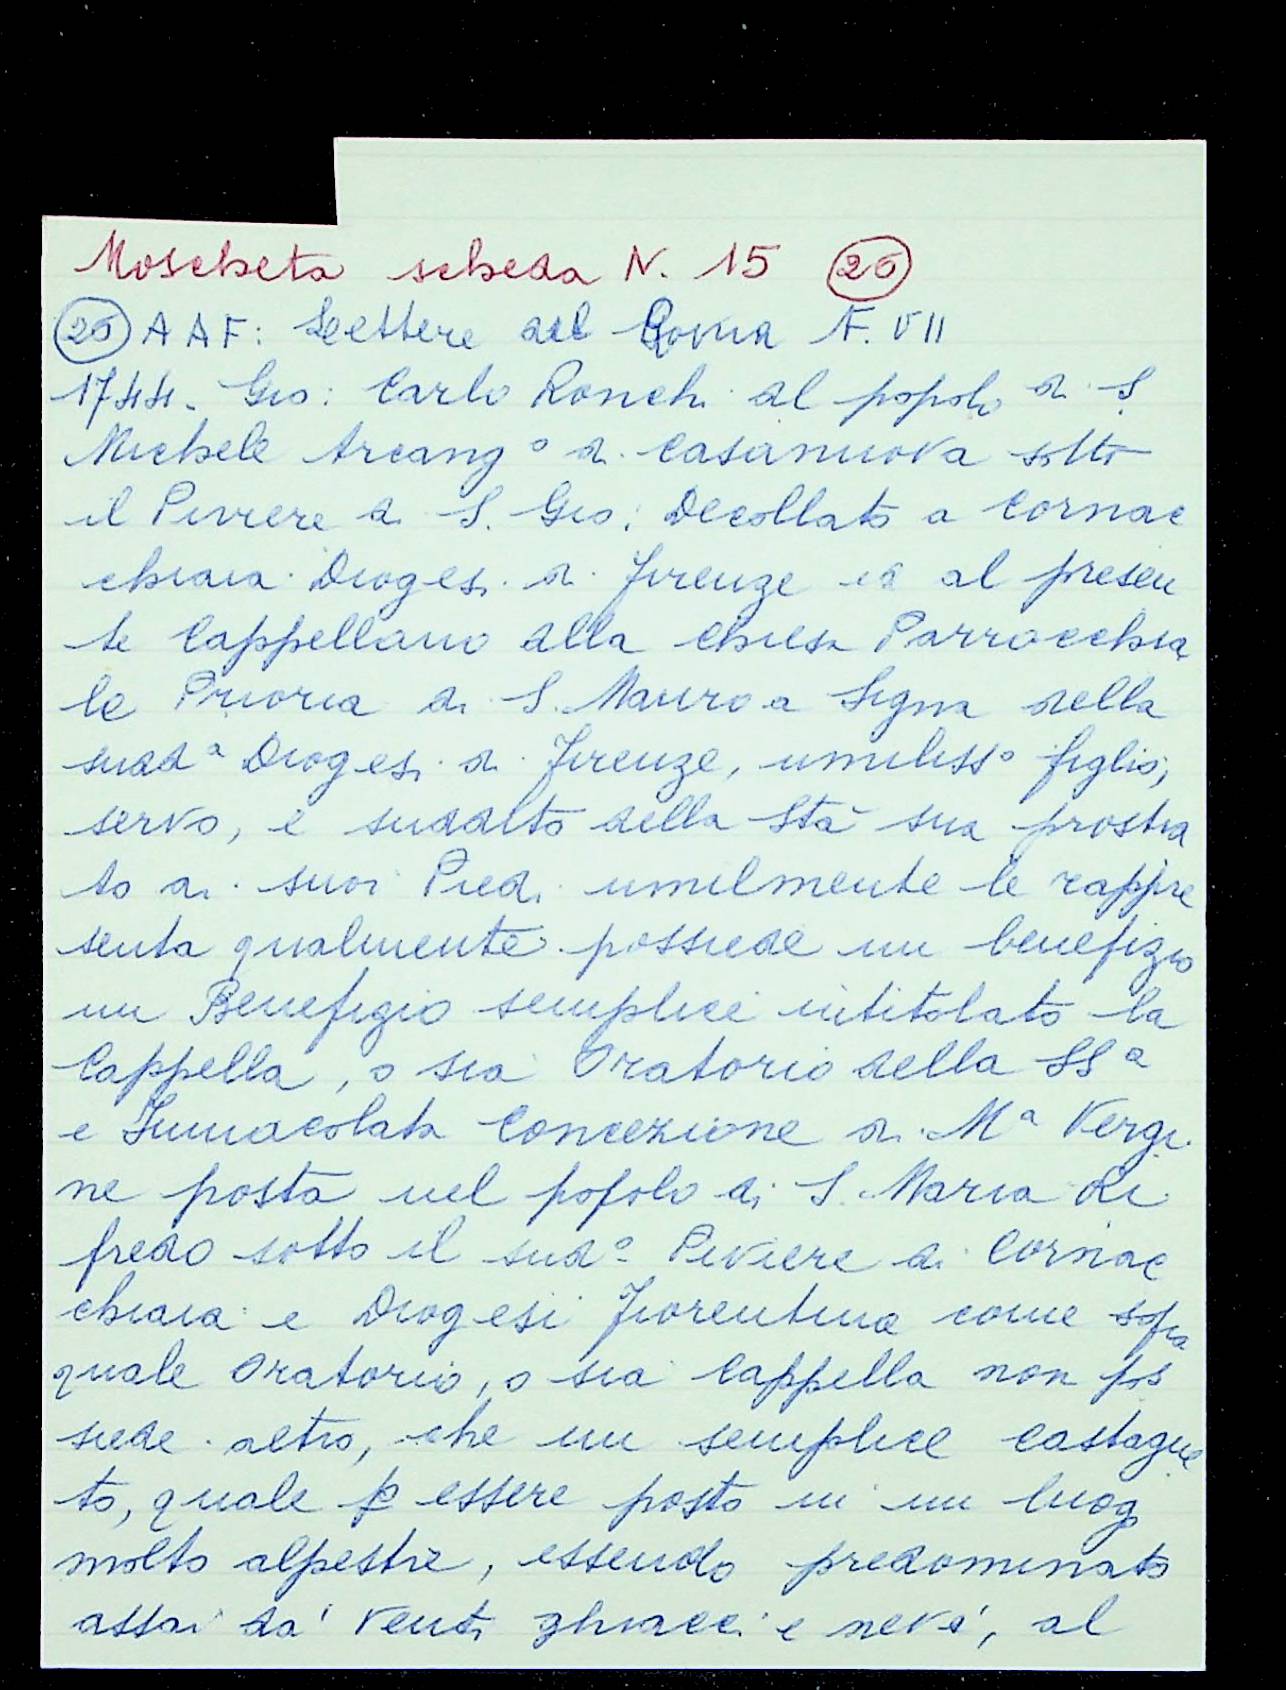 Moscheta scheda N. 15 (26)
(26) AAF: Lettere del Roma F. VII
1744. Gio: Carlo Ronchi al popolo di S
Michele Arcang° di Casanuova sotto
il Piviere di S. Gio: Decollato a Cornac
chiaia Diogesi di Firenze ed al presen
te Cappellano alla chiesa Parrocchia
le Prioria di S. Mauro a Signa della
sudda Diogesi di Firenze, umiliss° figlio,
servo, e suddito della Stà sua prostra
to ai suoi Piedi umilmente le rappre
senta qualmente possiede un benefizio
un Benefigio semplice intitolato la
Cappella, o sia Oratorio della SSa
e Immacolata Concezione di Ma Vergi
ne posta nel popolo di S. Maria Ri
fredo sotto il sud° Piviere di Cornac
chiaia e Diogesi Fiorentina come sopra
quale Oratorio, o sia Cappella non pos
siede altro, che un semplice castagne
to, quale p essere posto in un luog
molto alpestre, essendo predominato
assai da' venti ghiacci e neve, al